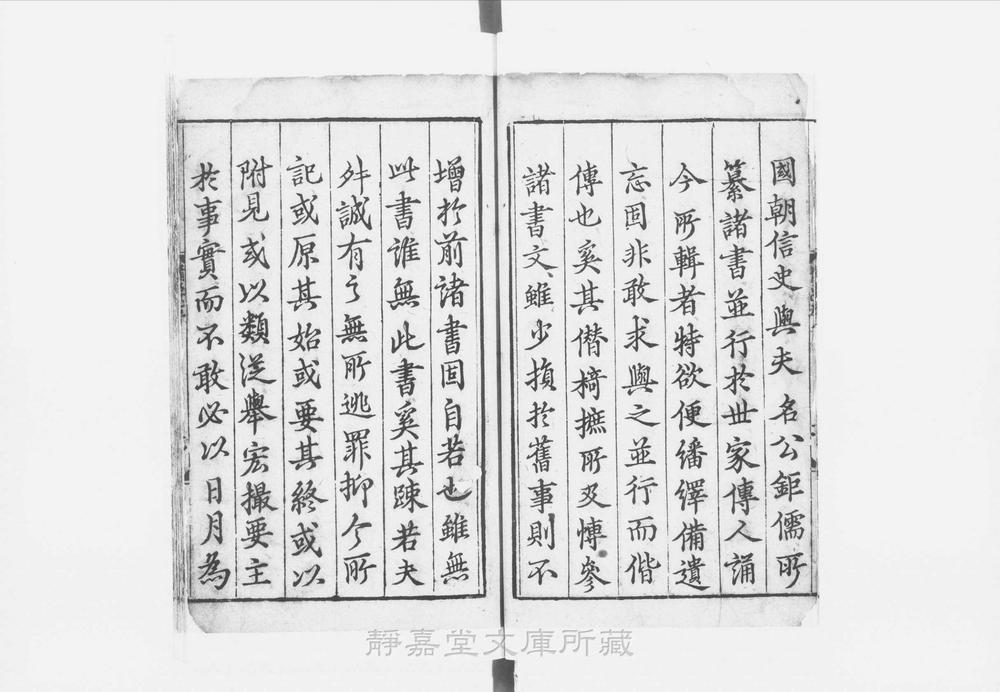 國朝信史與夫名公鉅儒所
纂諸書並行於世家傳人誦
今所輯者特欲便繙繹備遺
忘固非敢求與之並行而偕
傳也奚其僭掎摭所及博參
諸書文雖少損於舊事則不
增於前諸書固自若也雖無
此書誰無此書奚其疎若夫
舛誠有之無所逃罪抑今所
記或原其始或要其終或以
附見或以類從舉宏撮要主
於事實而不敢必以日月為
靜嘉堂文庫所藏